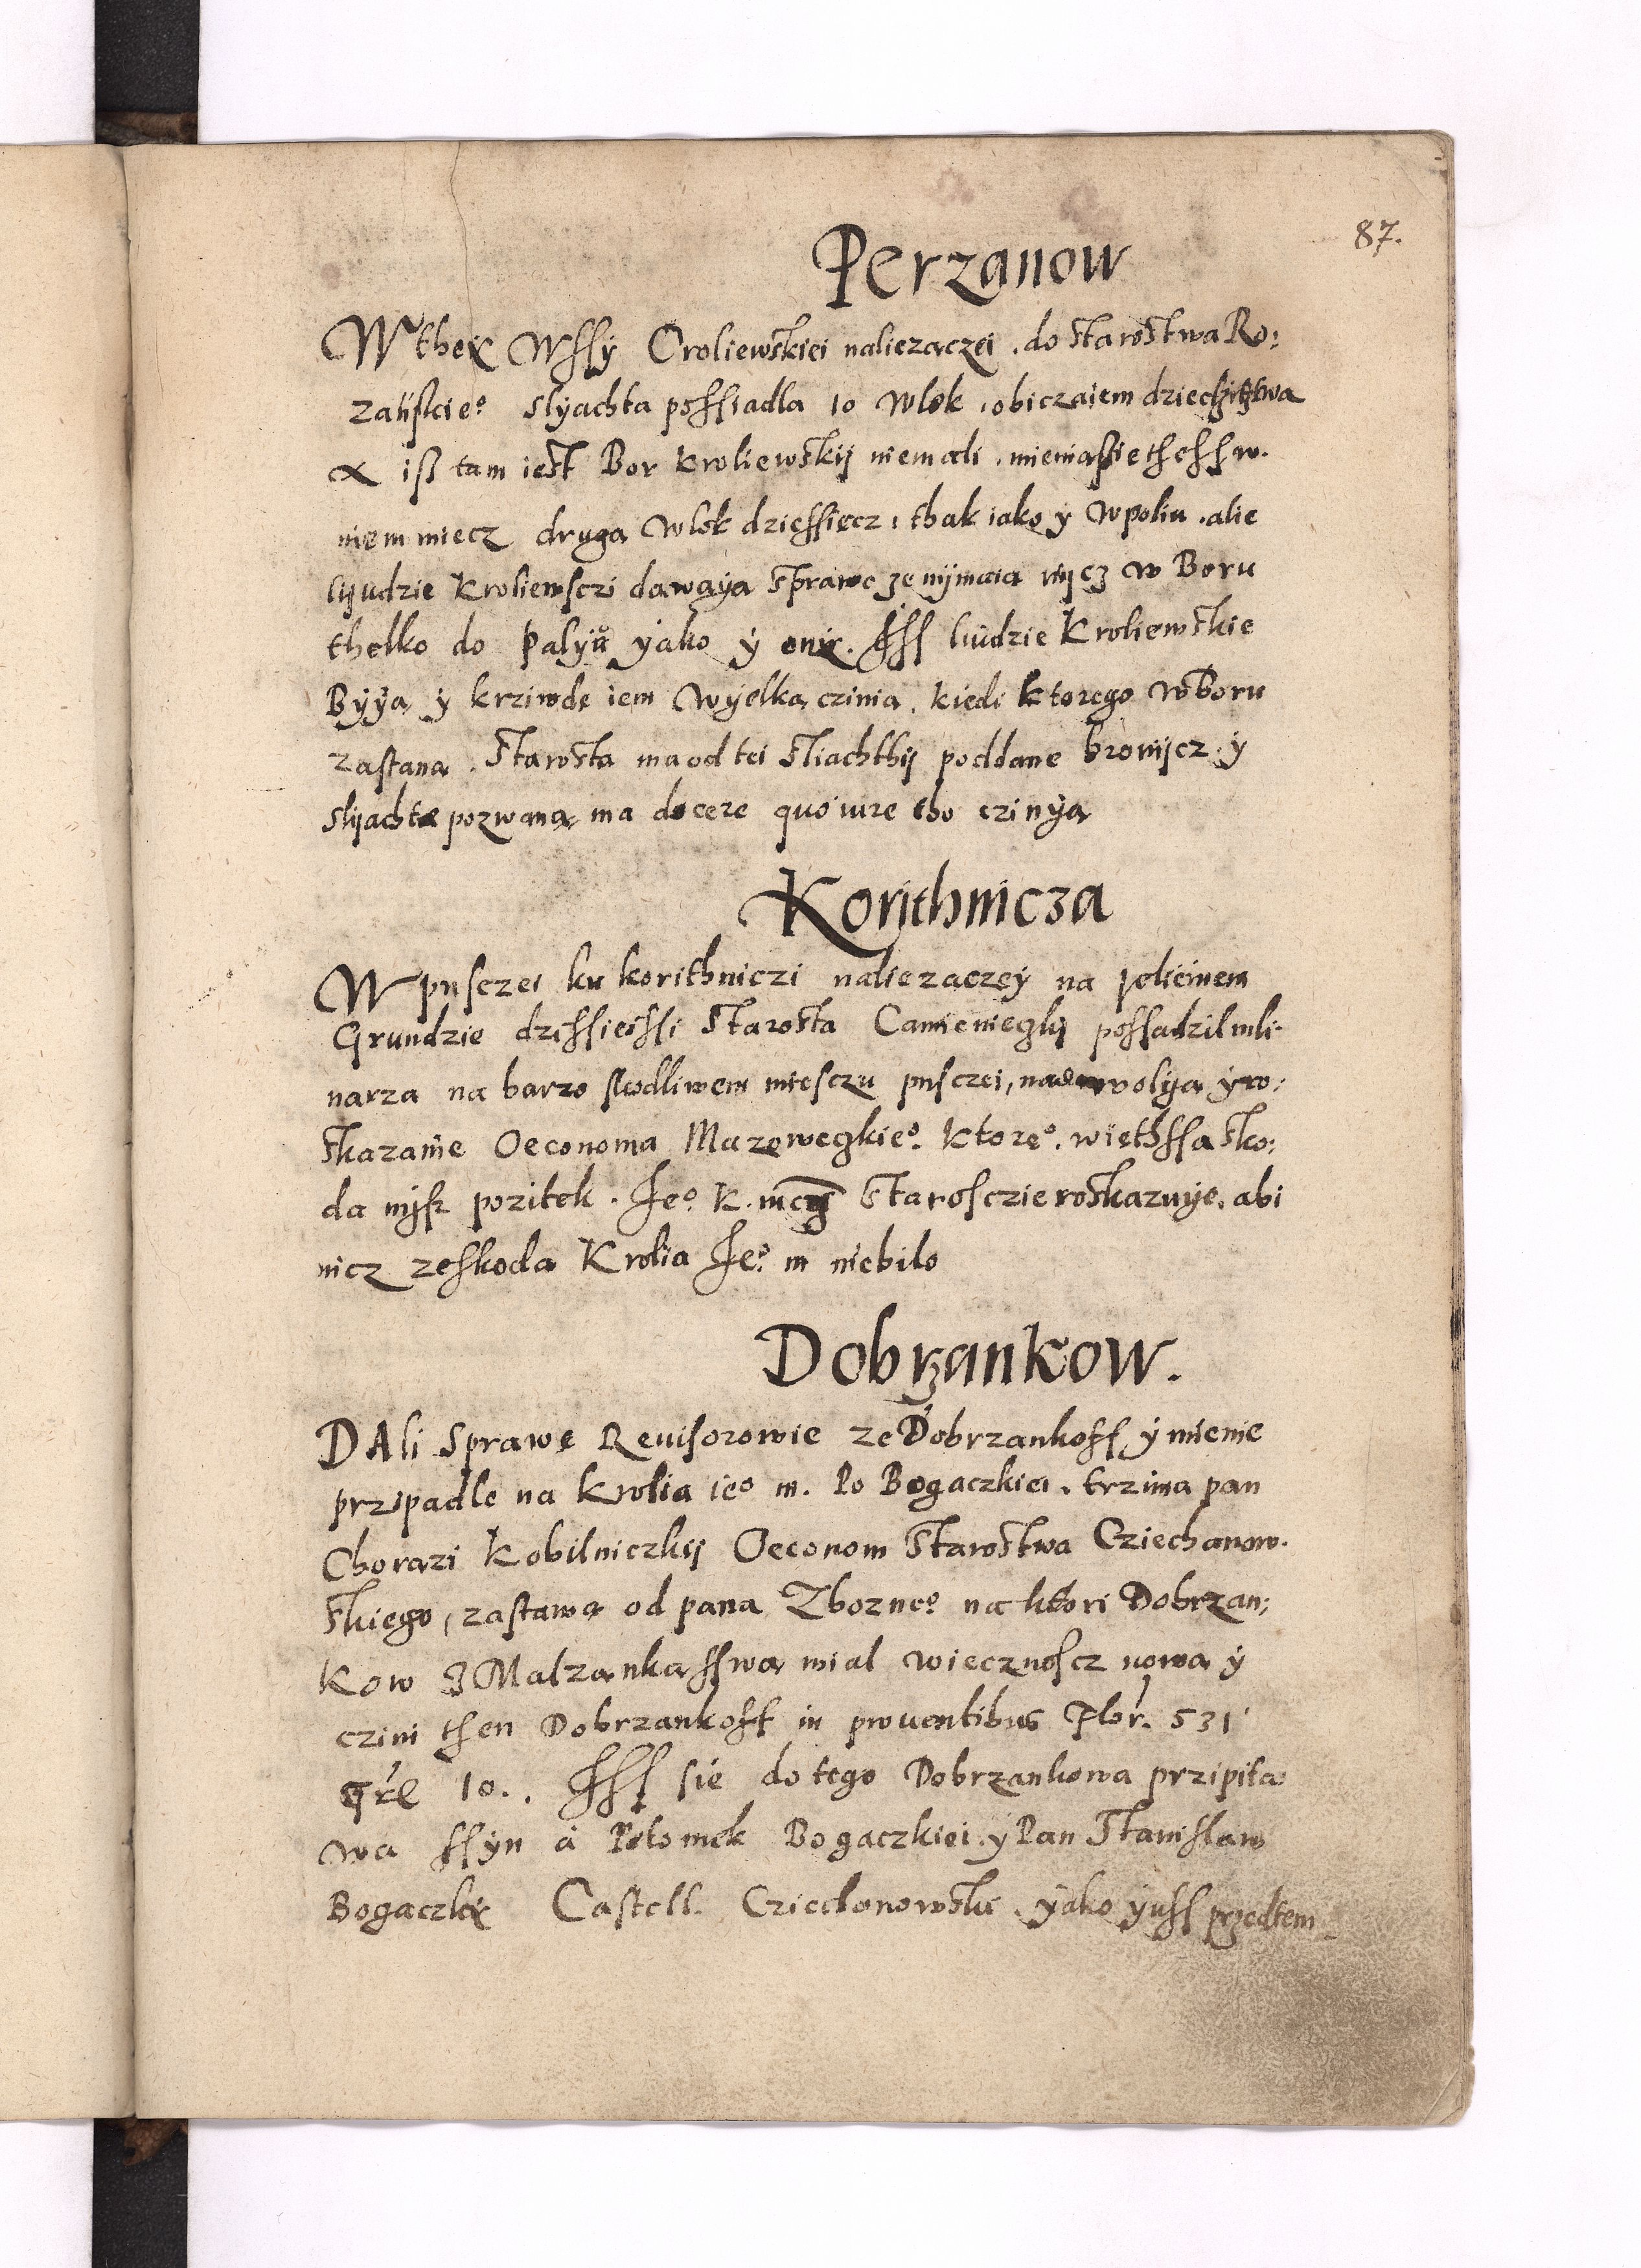 87.
Perzanow
W thei Wssÿ Croliewskiei naliezaczei . do starostwa Ro:
zańskie° Slÿachta possiadla 10 Wlok , obiczaiem dziedzitztwa
A iß tam iest Bor Kroliewskij niemali . mienia ßie thess w.
niem miecz druga Wlok dziessięcz , thak iako ÿ w poliu . alie
lijudzie Kroliewsczi dawaÿa sprawę ze nÿmaia nijcz w Boru
thelko do Palÿu ÿako ÿ oni . Iss liudzie Kroliewskie
Bÿÿa ÿ krziwdę iem Wÿelka czinia . kiedi ktorego w boru
zastana . Starosta ma od tei Sliachthij poddane bronijcz ÿ
Slijachta pozwana ma docere quo iure tho czinÿa
Korithnicza
W pusczei ku korithniczi naliezaczeÿ na
Grundzie dzissieissi Starosta Camienieczkij possadzil mli-
narza na barzo skodliwem miesczu pusczei, nad wolÿa ÿ ro:
skazanie Oeconoma Mazoweczkie° . Ktore° . wiethssa sko:
da nijsz pozitek . Je° K. mcz Starosczie roskazuÿe . abi
nicz ze skoda Krolia Je° m niebilo
Dobrzankow.
DAli Sprawę Reuisorowie ze Dobrzankoff ÿmienie
przipadlo na Krolia ie° m. Po Bogaczkiei . trzima pan
Chorazi Kobilniczkij Oeconom Starostwa Cziechanow-
skiego , zastawa od pana Zbozne° na ktori Dobrzan:
Kow Z Malzanka sswa mial wiecznoscz nowa ÿ
czini then Dobrzankoff in prouentibus Flor. 531
grl 10.. Iss sie do tego Dobrzankowa przipita
wa ssÿn a Potomek Bogaczkiei . ÿ Pan Stanislaw
Bogaczki Castell. Cziechonowski . ÿako ÿuss przedtem